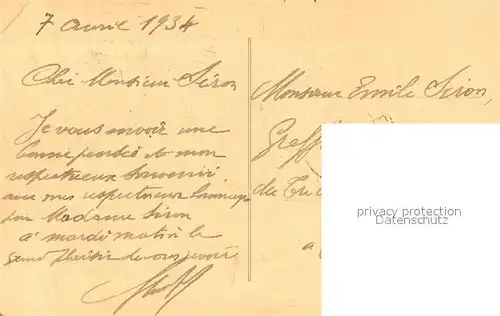 7 avril 1934
Cher Monsieur Séron
Je vous envoie une
bonne pensée et mon
respectueux souvenir
avec mes respectueux hommages
pour Madame Séron
à mardi matin le
grand plaisir de vous revoir
Monsieur Emile Séron,
Greff
du Tri
privacy protection
Datenschutz
a